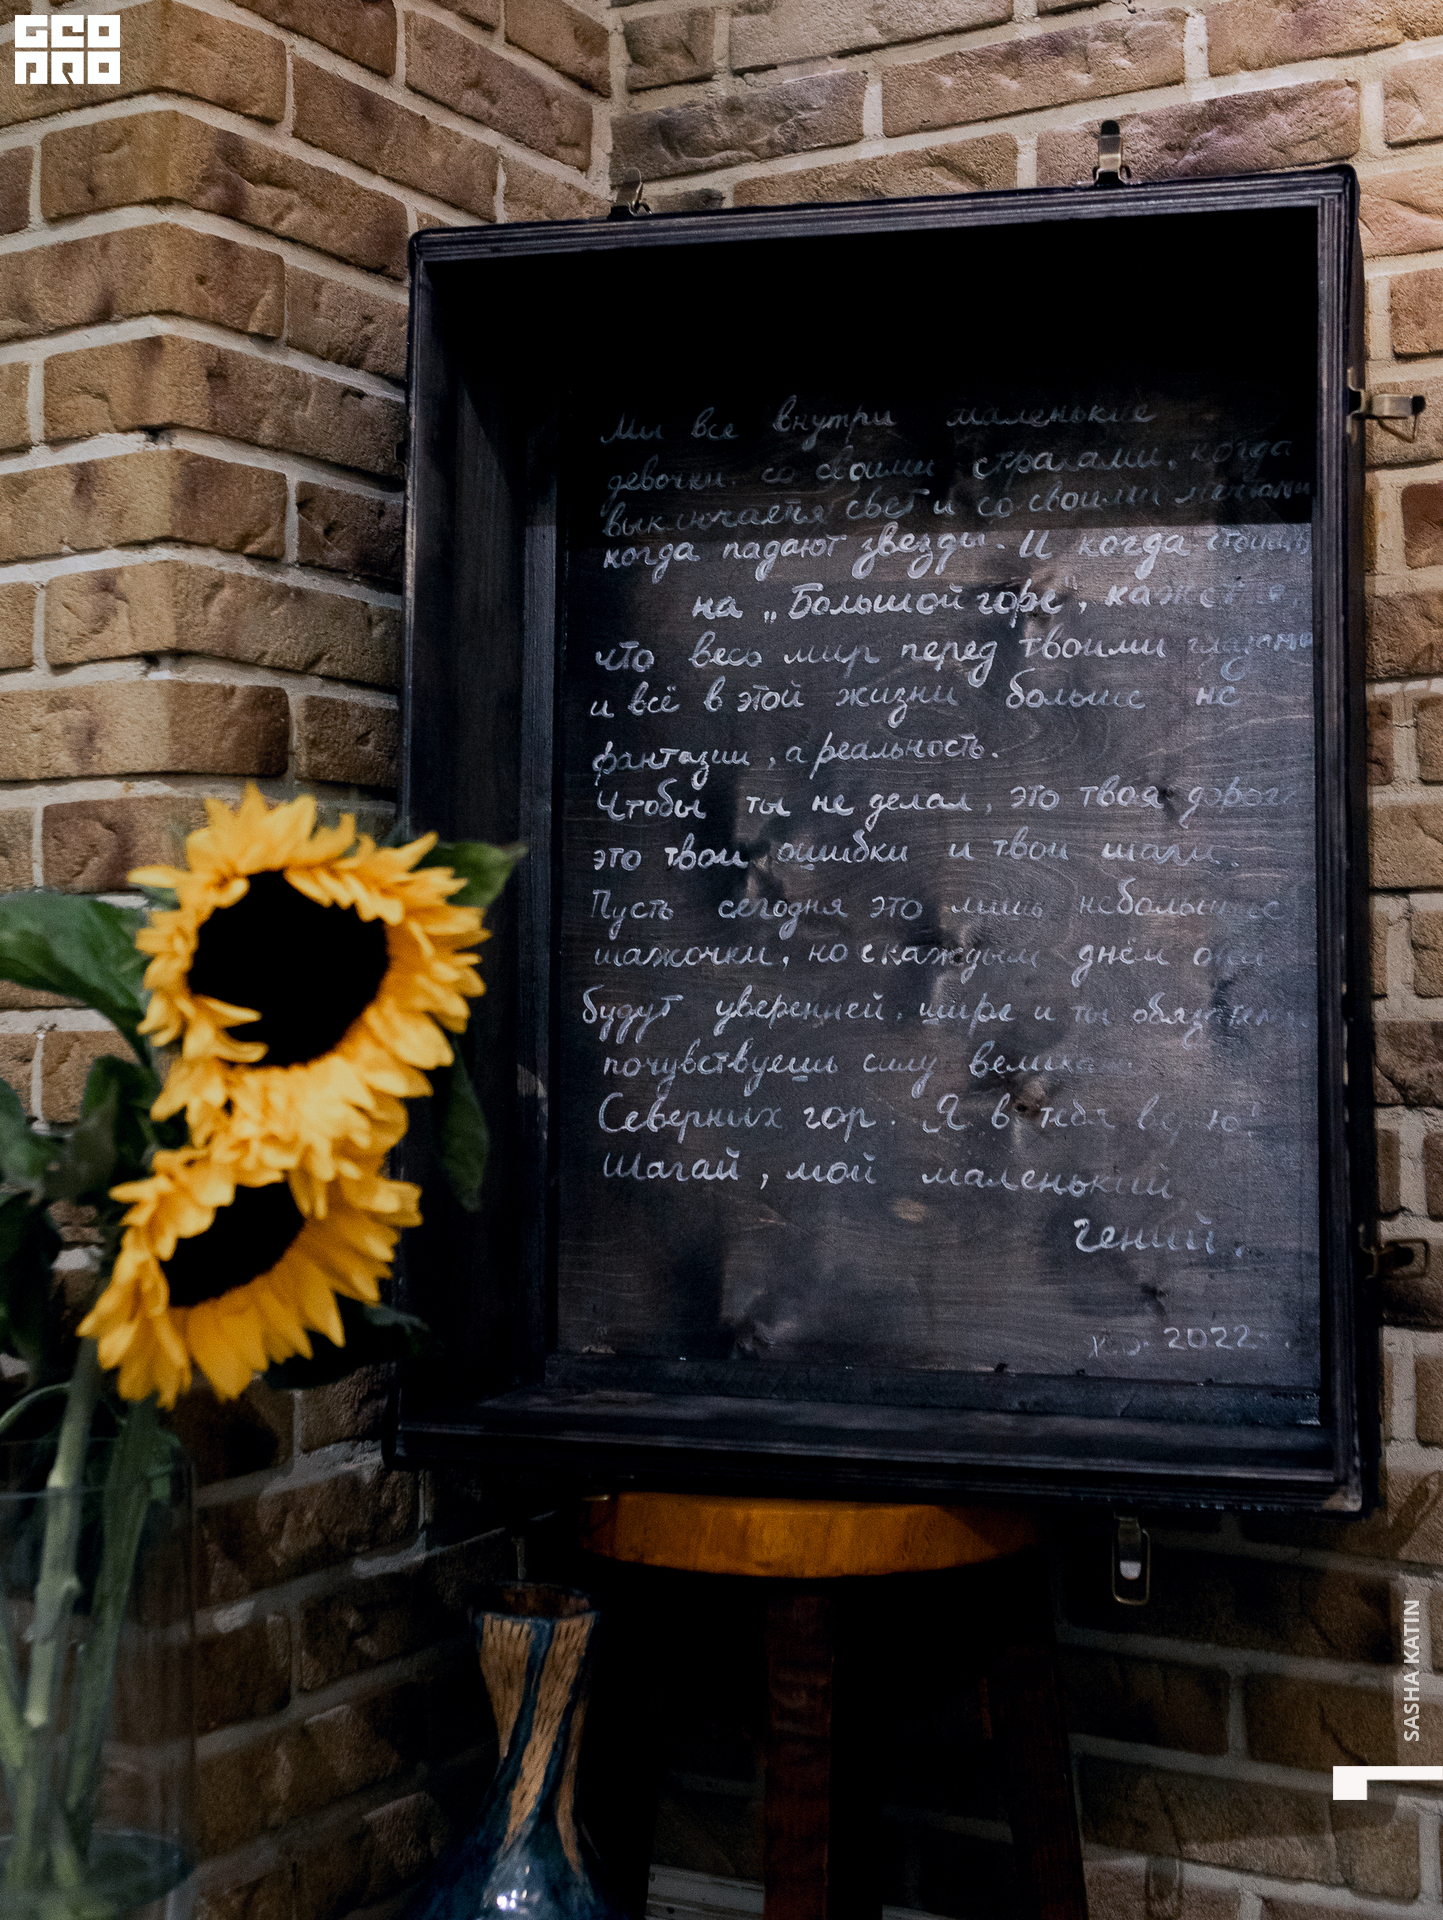 GEO
PRO
Мы все внутри маленькие
девочки со своими страхами, когда
выключается свет и со своими мечтами
когда падают звёзды. И когда стоишь
на „Большой горе", кажется
что весь мир перед твоими глазами
и всё в этой жизни больше не
фантазии, а реальность.
Чтобы ты не делал, это твоя дорога
это твои ошибки и твои шаги.
Пусть сегодня это лишь небольшие
шажочки, но с каждым днём они
будут уверенней, шире и ты обязательно
почувствуешь силу великих
Северных гор. Я в тебя верю!
Шагай, мой маленький
гений.
2022
SASHA KATIN